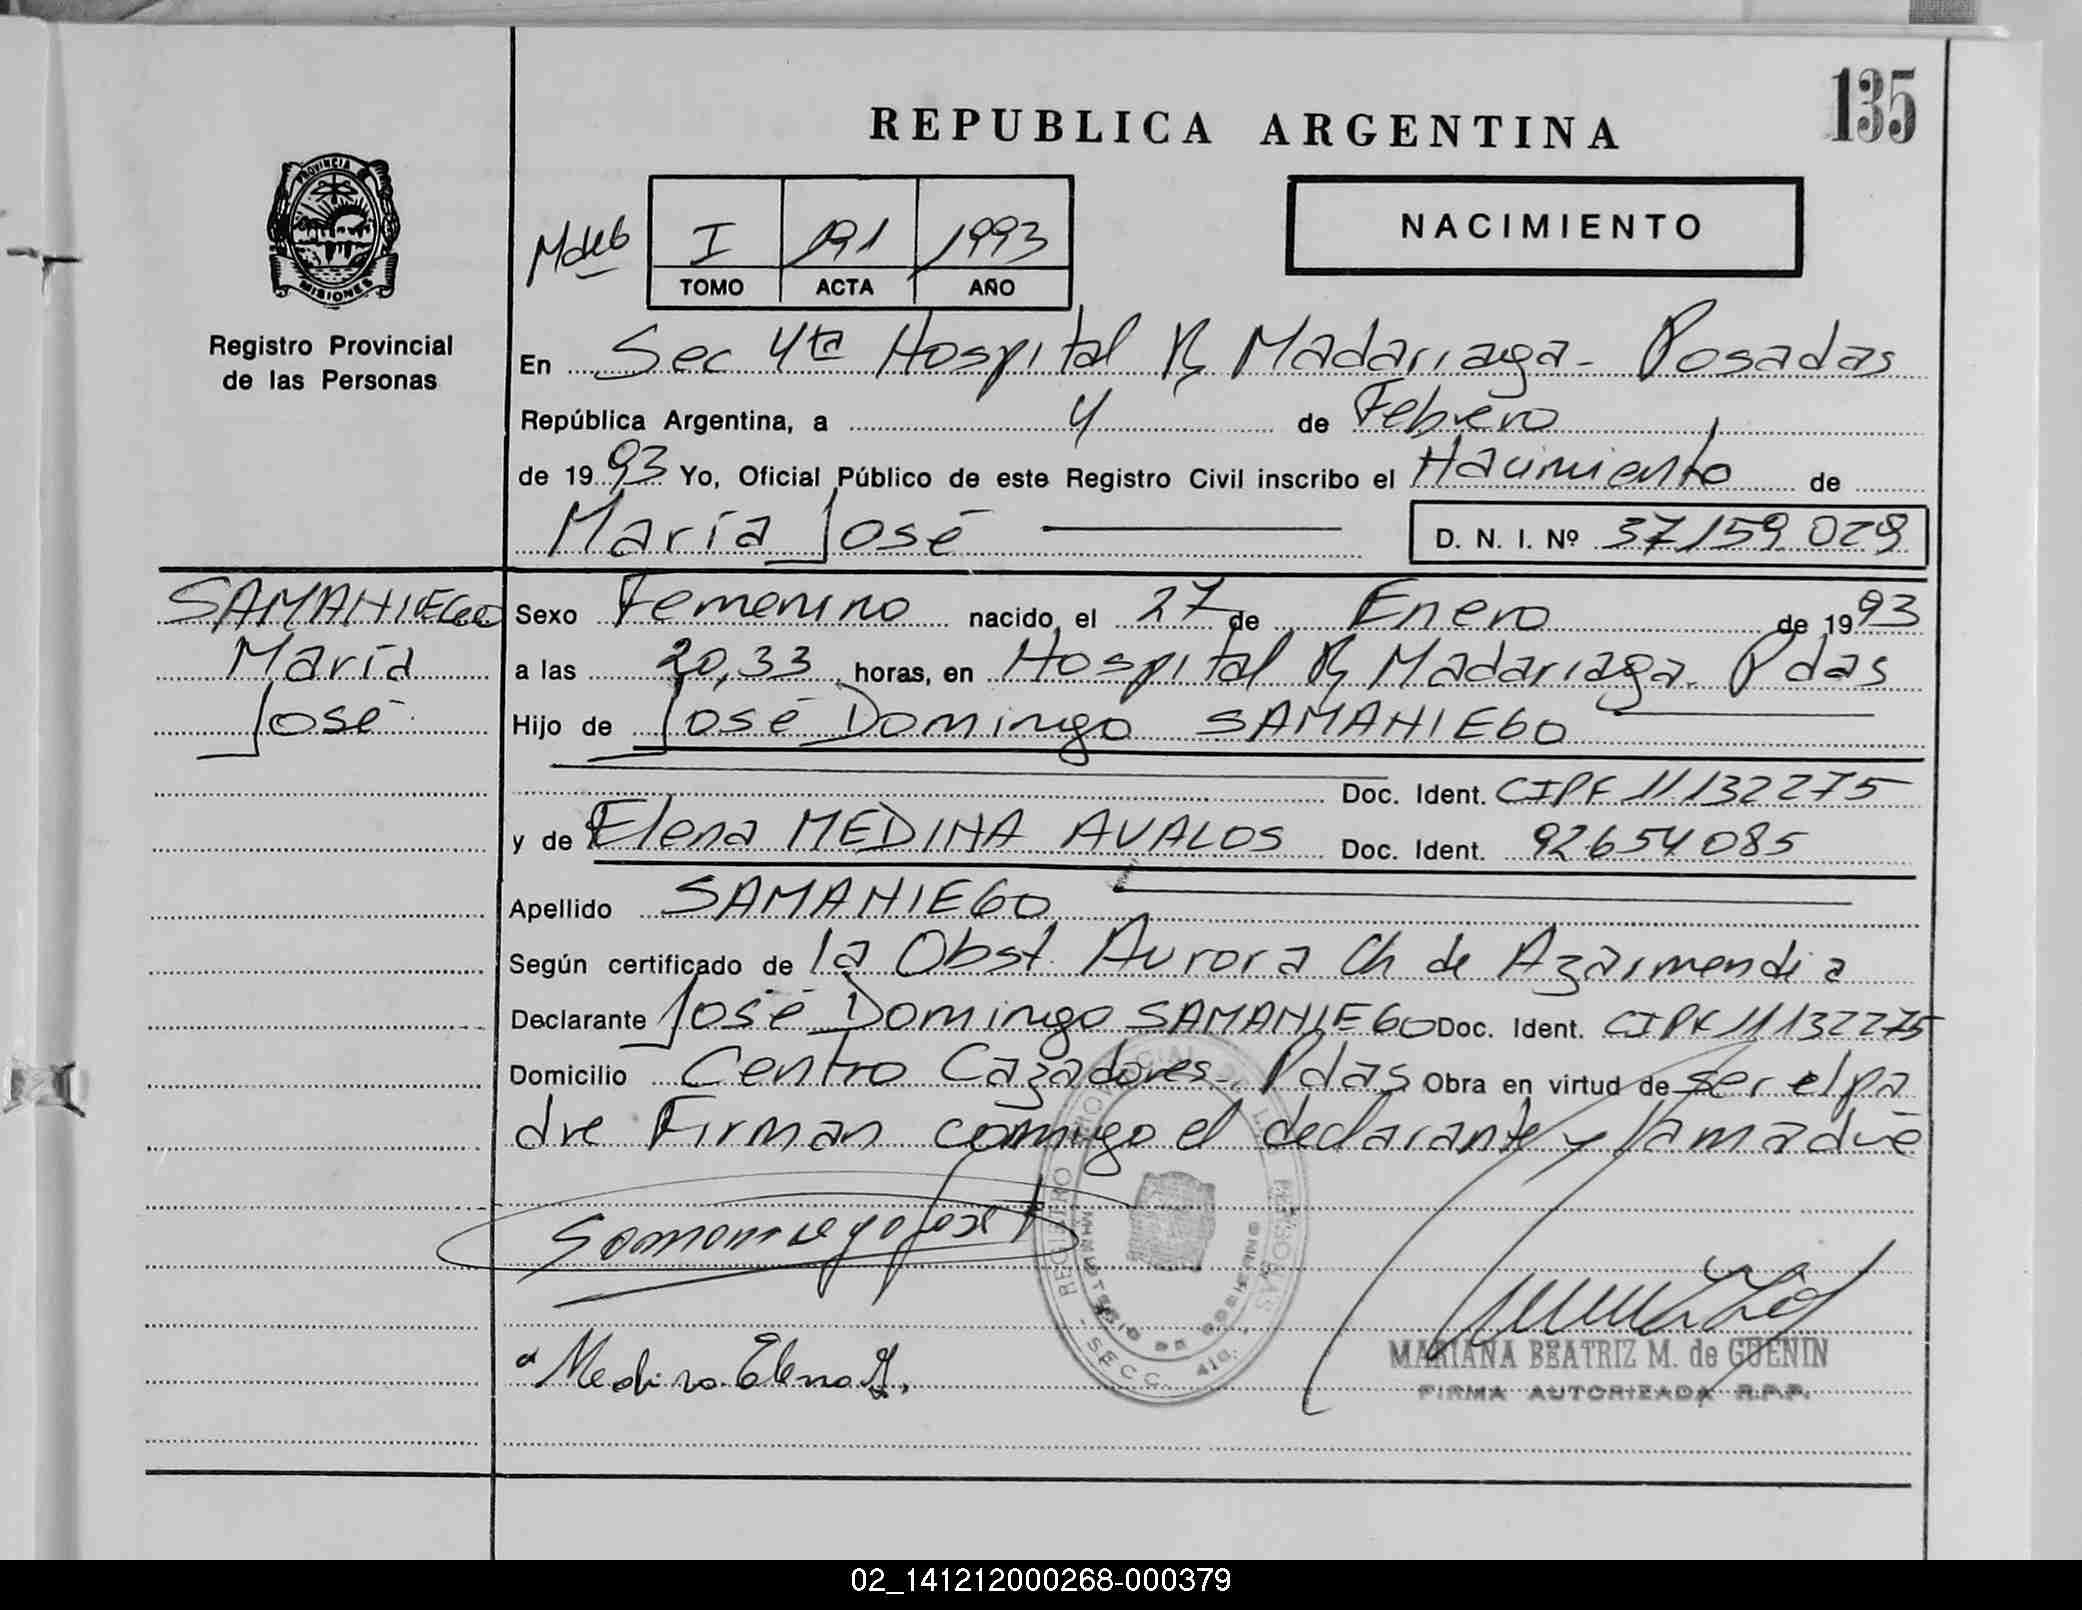 135
REPUBLICA ARGENTINA
PROVINCIA
MISIONES
Registro Provincial
de las Personas
NACIMIENTO
I 191 1993
TOMO ACTA AÑO
En Sec 4ta Hospital R. Madariaga - Posadas
República Argentina, a 4 de Febrero
de 1993 Yo, Oficial Público de este Registro Civil inscribo el Nacimiento de
María José D. N. I. Nº 37159029
SAMANIEGO
María
José
Sexo Femenino nacido el 27 de Enero de 1993
a las 20,33 horas, en Hospital R. Madariaga - Pdas
Hijo de José Domingo SAMANIEGO
Doc. Ident. CIPF 11132275
y de Elena MEDINA AVALOS Doc. Ident. 92654085
Apellido SAMANIEGO
Según certificado de la Obst. Aurora Ch de Azarmendia
Declarante José Domingo SAMANIEGO Doc. Ident. CIPF 11132275
Domicilio Centro Cazadores - Pdas Obra en virtud de ser el pa
dre Firman conmigo el declarante y la madre
Samaniego José
REGISTRO PROVINCIAL DE LAS PERSONAS
MINISTERIO DE GOBIERNO
- SECC. 4ta. -
Medina Elena
MARIANA BEATRIZ M. de GUENIN
FIRMA AUTORIZADA R.P.P.
02_141212000268-000379